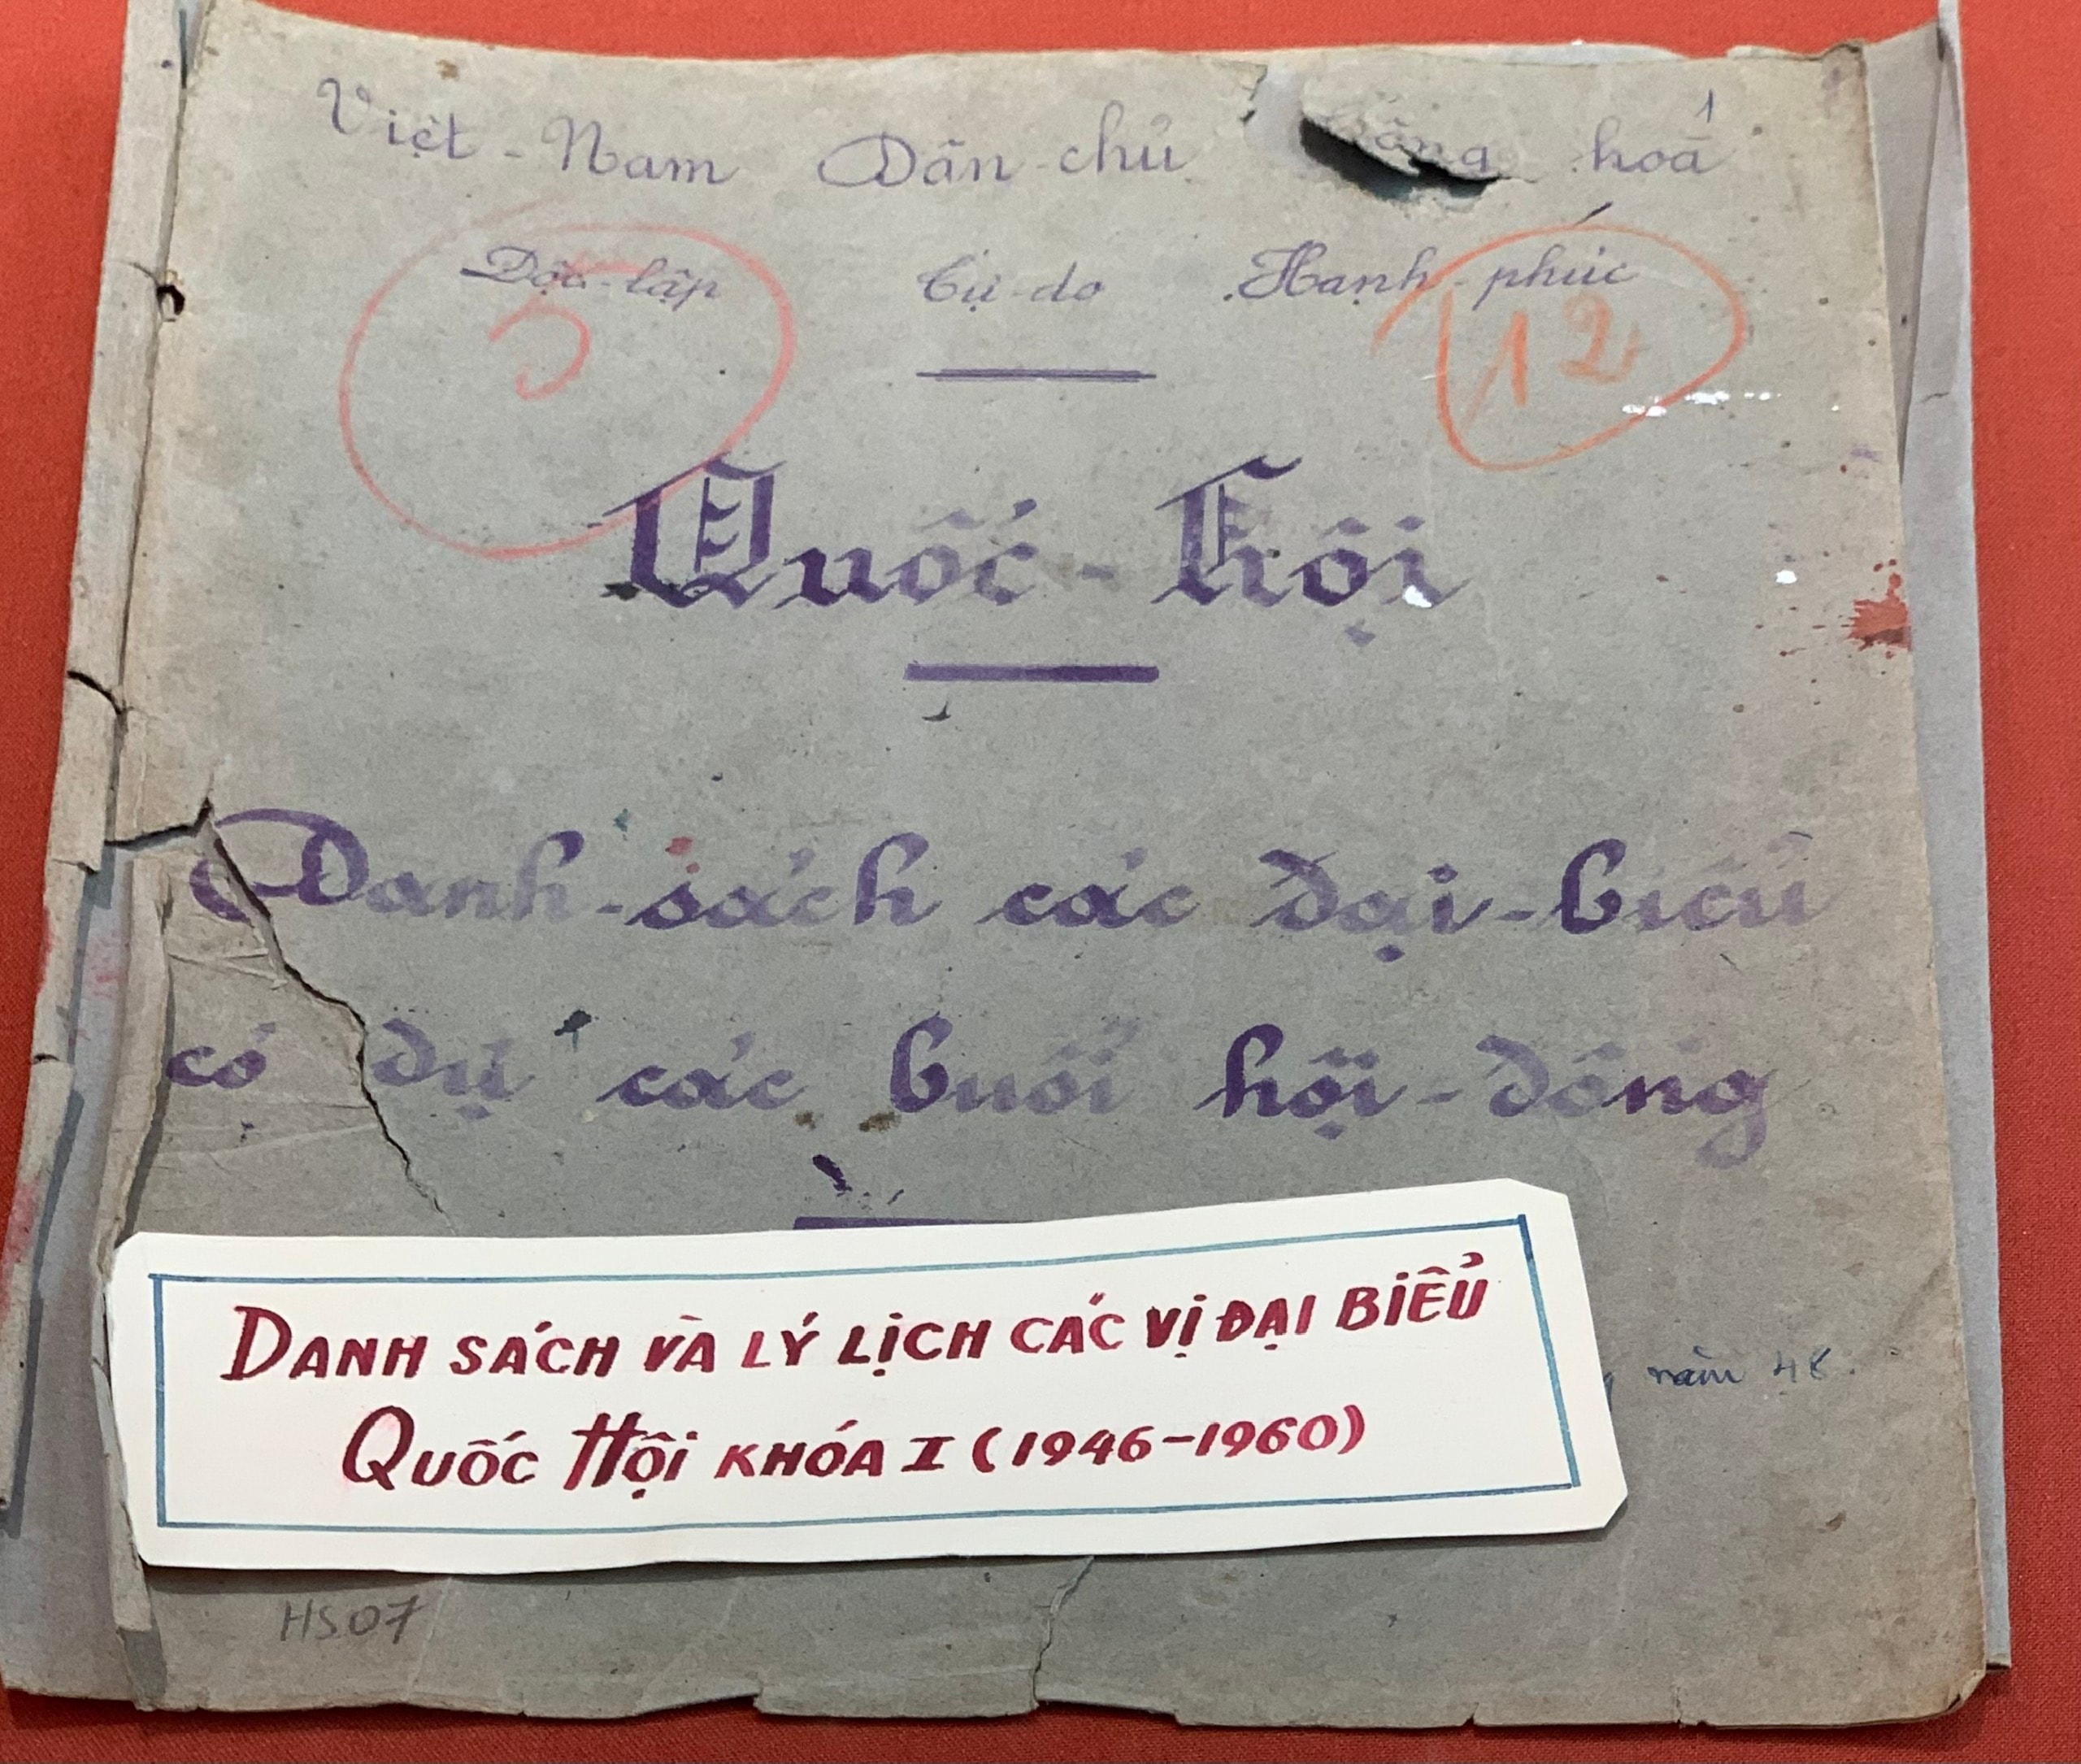 Việt-Nam Dân-chủ hoà
1
Độc-lập Tự-do Hạnh-phúc
12
Quốc-Hội
Danh-sách các đại-biểu
có dự các buổi hội-đồng
DANH SÁCH VÀ LÝ LỊCH CÁC VỊ ĐẠI BIỂU
QUỐC HỘI KHÓA I (1946-1960)
năm 48.
HS07